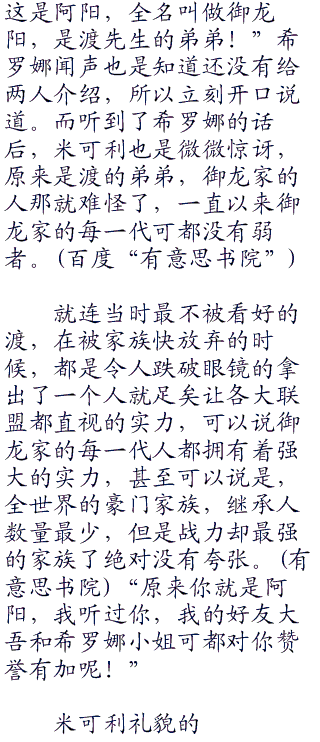 这是阿阳，全名叫做御龙
阳，是渡先生的弟弟！”希
罗娜闻声也是知道还没有给
两人介绍，所以立刻开口说
道。而听到了希罗娜的话
后，米可利也是微微惊讶，
原来是渡的弟弟，御龙家的
人那就难怪了，一直以来御
龙家的每一代可都没有弱
者。(百度“有意思书院”)
就连当时最不被看好的
渡，在被家族快放弃的时
候，都是令人跌破眼镜的拿
出了一个人就足矣让各大联
盟都直视的实力，可以说御
龙家的每一代人都拥有着强
大的实力，甚至可以说是，
全世界的豪门家族，继承人
数量最少，但是战力却最强
的家族了绝对没有夸张。(有
意思书院)“原来你就是阿
阳，我听过你，我的好友大
吾和希罗娜小姐可都对你赞
誉有加呢！”
米可利礼貌的